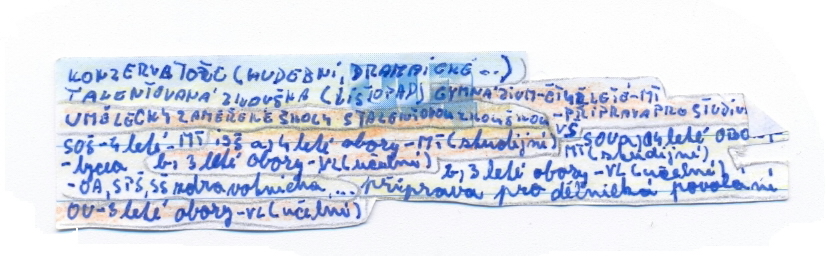 KONZERVATOŘE (HUDEBNÍ, DRAMATICKÉ ...)
TALENTOVANÁ ZKOUŠKA (LISTOPAD) GYMNÁZIUM-ČTYŘLETÉ-MT
UMĚLECKY ZAMĚŘENÉ ŠKOLY S TALENTOVOU ZKOUŠKOU -PŘÍPRAVA PRO STUDIUM VŠ
SOŠ-4 leté-MT ISŠ a) 4 leté obory-MT (studijní) SOU a) 4 leté OBO-MT (studijní)
-lycea b) 3 leté obory-VL (učební) b) 3 leté obory-VL (učební)
-OA, SPŠ, SŠ zdravotnická, ... příprava pro dělnická povolání
OU-3 leté obory-VL (učební)